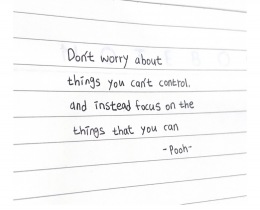 Don't worry about
things you can't control.
and instead focus on the
things that you can
-Pooh-